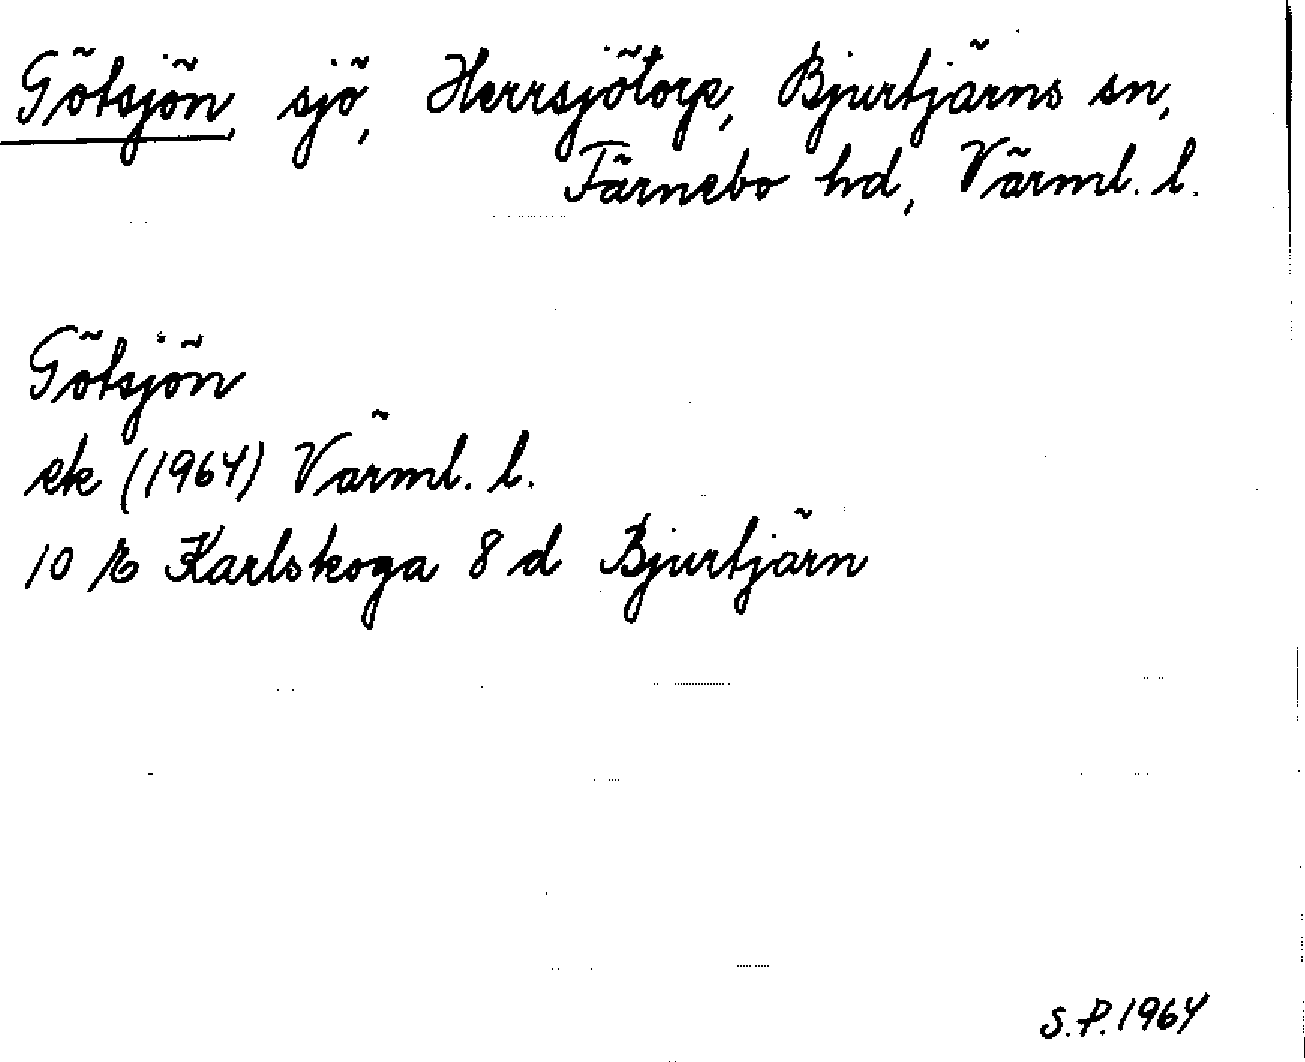 Götsjön, sjö, Herrsjötorp, Bjurtjärns sn,
Färnebo hd, Värml. l.
Götsjön
ek (1964) Värml. l.
10 E Karlskoga 8 d Bjurtjärn
S.P. 1964